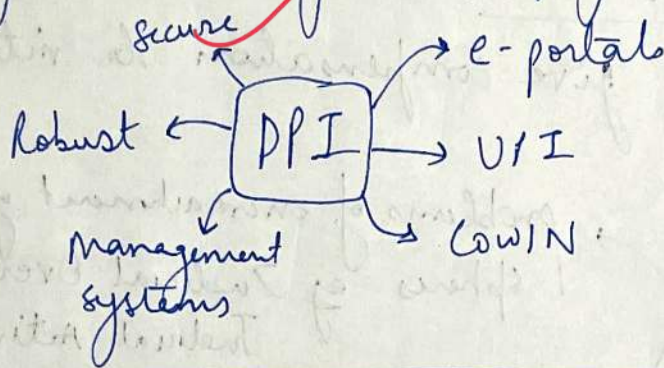 secure
e-portals
Robust
DPI
UPI
Management
systems
COWIN